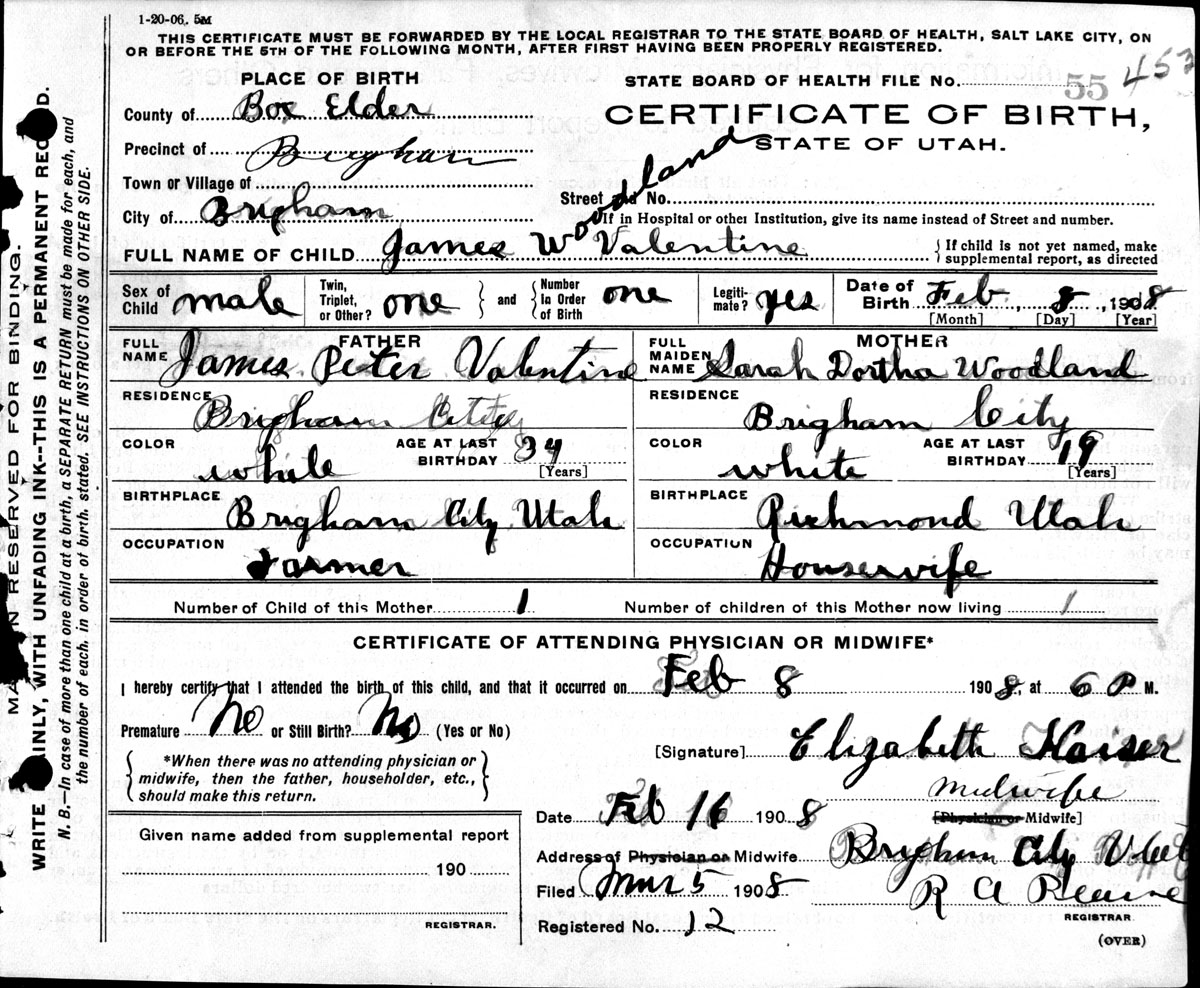 1-20-06. 5M
THIS CERTIFICATE MUST BE FORWARDED BY THE LOCAL REGISTRAR TO THE STATE BOARD OF HEALTH, SALT LAKE CITY, ON
OR BEFORE THE 5TH OF THE FOLLOWING MONTH, AFTER FIRST HAVING BEEN PROPERLY REGISTERED.
PLACE OF BIRTH
County of Box Elder
Precinct of Brigham
Town or Village of
City of Brigham
STATE BOARD OF HEALTH FILE No. 55 453
CERTIFICATE OF BIRTH,
STATE OF UTAH.
Street and No.
If in Hospital or other Institution, give its name instead of Street and number.
FULL NAME OF CHILD James Woodland Valentine
If child is not yet named, make
supplemental report, as directed
Sex of Child male
Twin, Triplet, or Other? one
and
Number In Order of Birth one
Legitimate? yes
Date of Birth Feb, 8, 1908
[Month] [Day] [Year]
FATHER
FULL NAME James Peter Valentine
RESIDENCE Brigham City
COLOR white
AGE AT LAST BIRTHDAY 34 [Years]
BIRTHPLACE Brigham City Utah
OCCUPATION Farmer
MOTHER
FULL MAIDEN NAME Sarah Dortha Woodland
RESIDENCE Brigham City
COLOR white
AGE AT LAST BIRTHDAY 19 [Years]
BIRTHPLACE Richmond Utah
OCCUPATION Housewife
Number of Child of this Mother 1
Number of children of this Mother now living 1
CERTIFICATE OF ATTENDING PHYSICIAN OR MIDWIFE*
I hereby certify that I attended the birth of this child, and that it occurred on Feb 8 1908, at 6 P M.
Premature No or Still Birth? No (Yes or No)
*When there was no attending physician or
midwife, then the father, householder, etc.,
should make this return.
[Signature] Elizabeth Kaiser
midwife
[Physician or Midwife]
Date Feb 16 1908
Address of Physician or Midwife Brigham City Utah
Filed Mar 5 1908
R A
REGISTRAR
Registered No. 12
(OVER)
Given name added from supplemental report
190
REGISTRAR.
RESERVED FOR BINDING.
INLY, WITH UNFADING INK--THIS IS A PERMANENT
WRITE
N. B.—In case of more than one child at a birth, a SEPARATE RETURN must be made for each, and
the number of each, in order of birth, stated. SEE INSTRUCTIONS ON OTHER SIDE.